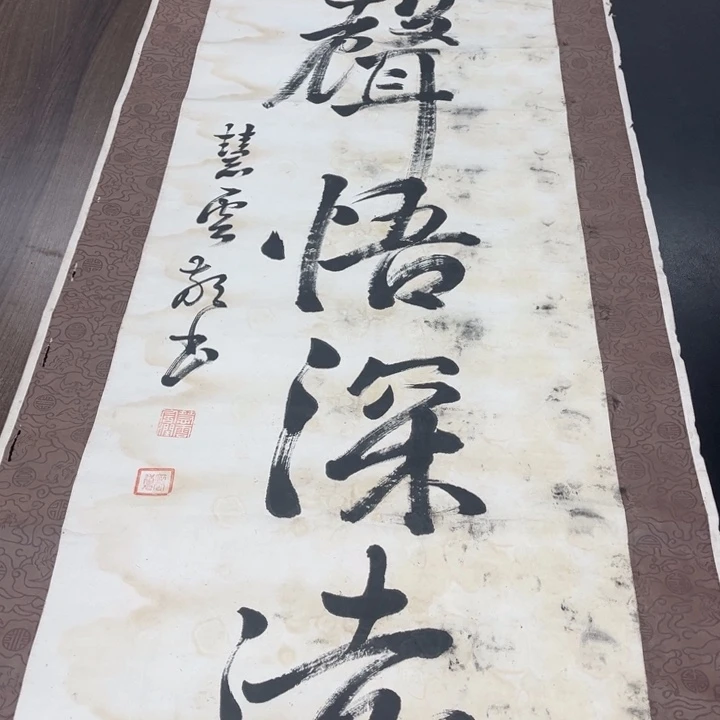 聲悟深法
慧雲敬書